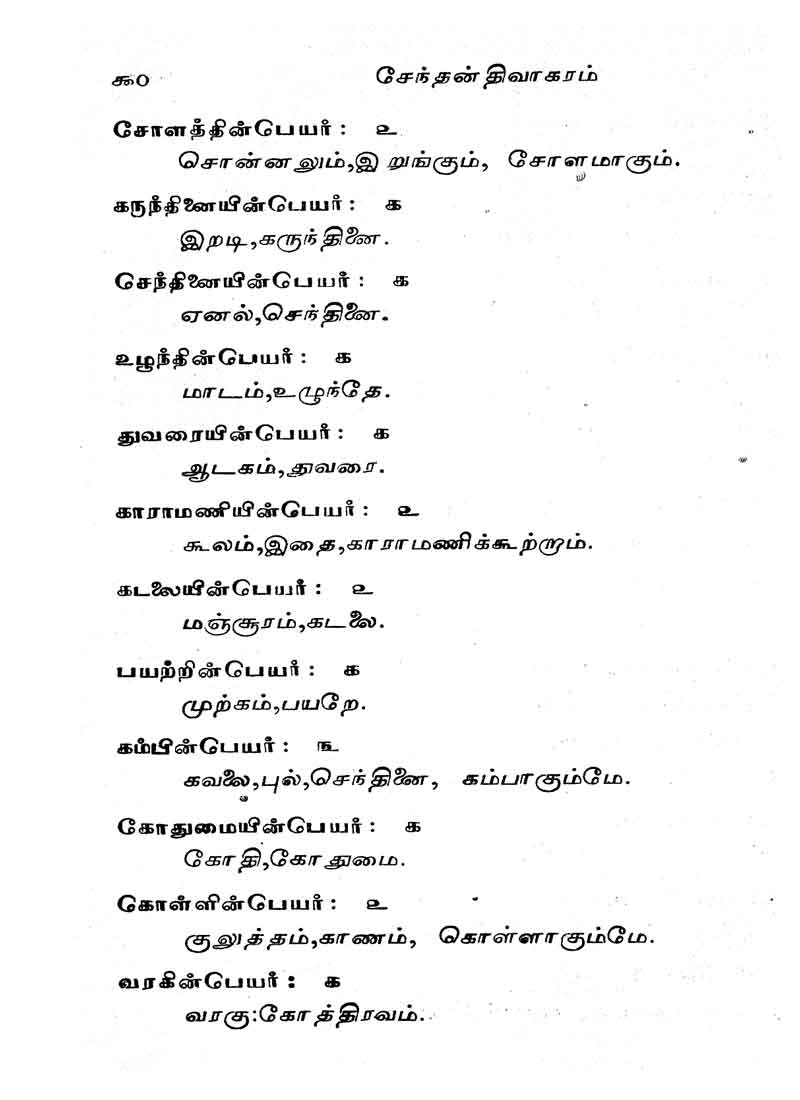 ௯0 சேந்தன் திவாகரம்
சோளத்தின்பெயர் : ௨
சொன்னலும்,இறுங்கும், சோளமாகும்.
கருந்தினையின்பெயர் : ௧
இறடி,கருந்தினை.
செந்தினையின்பெயர் : ௧
ஏனல்,செந்தினை.
உழுந்தின்பெயர் : ௧
மாடம்,உழுந்தே.
துவரையின்பெயர் : ௧
ஆடகம்,துவரை.
காராமணியின்பெயர் : ௨
கூலம்,இதை,காராமணிக்கூற்றும்.
கடலையின்பெயர் : ௨
மஞ்சூரம்,கடலை.
பயற்றின்பெயர் : ௧
முற்கம்,பயறே.
கம்பின்பெயர் : ௩
கவலை,புல்,செந்தினை, கம்பாகும்மே.
கோதுமையின்பெயர் : ௧
கோதி,கோதுமை.
கொள்ளின்பெயர் : ௨
குலுத்தம்,காணம், கொள்ளாகும்மே.
வரகின்பெயர் : ௧
வரகு:கோத்திரவம்.